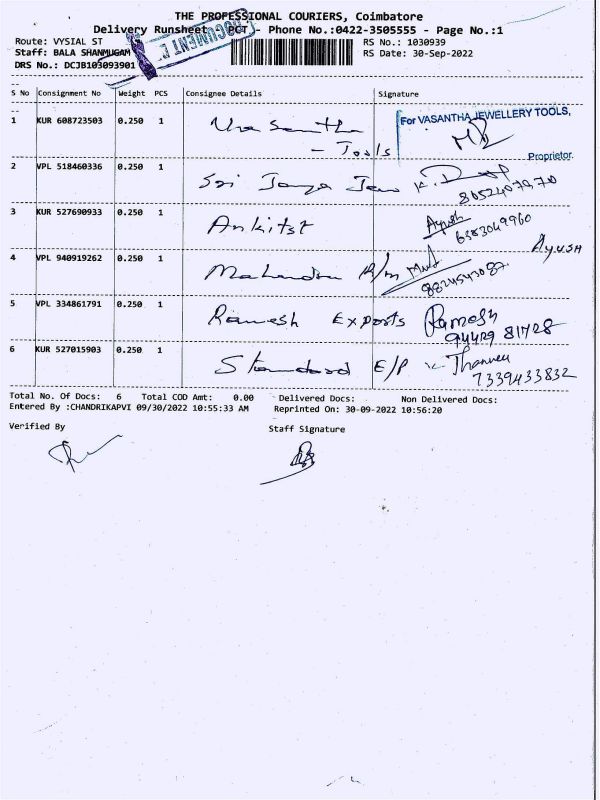 THE PROFESSIONAL COURIERS, Coimbatore
Delivery Runsheet - PCT - Phone No.:0422-3505555 - Page No.:1
Route: VYSIAL ST
RS No.: 1030939
Staff: BALA SHANMUGAM
RS Date: 30-Sep-2022
DRS No.: DCJB103093901
DOCUMENT
S No Consignment No Weight PCS Consignee Details Signature
1 KUR 608723503 0.250 1
- Tools
For VASANTHA JEWELLERY TOOLS,
Proprietor.
2 VPL 518460336 0.250 1 Sri Jaya
3 KUR 527690933 0.250 1 Ankitst Ayush
6383049960
Ayush
4 VPL 940919262 0.250 1 Mahendra
5 VPL 334861791 0.250 1 Ramesh Exports Ramesh
94429 81728
6 KUR 527015903 0.250 1 Standard E/P
7339433832
Total No. Of Docs: 6 Total COD Amt: 0.00 Delivered Docs: Non Delivered Docs:
Entered By :CHANDRIKAPVI 09/30/2022 10:55:33 AM Reprinted On: 30-09-2022 10:56:20
Verified By
Staff Signature